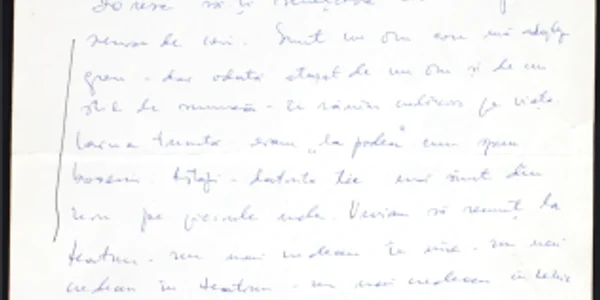 Doresc să ți
de ieri. Sunt un om care mă atașez
greu - dar odată atașat de un om și de un
stil de muncă - îi rămân credincios pe viață.
Iarna trecută eram „la podea” cum spun
boxerii. Astăzi - datorită ție mă simt din
nou pe picioarele mele. Voiam să renunț la
teatru - nu mai credeam în mine - nu mai
credeam în teatru - nu mai credeam în